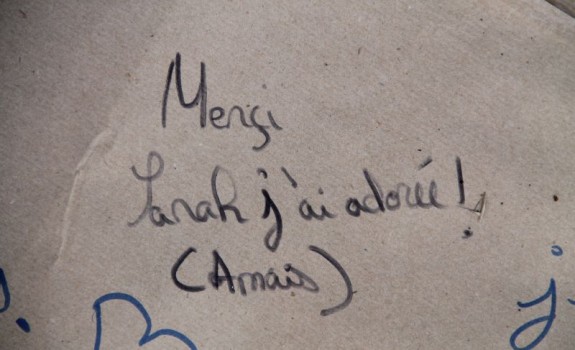 Merçi
Sarah j'ai adorée!
(Anais)